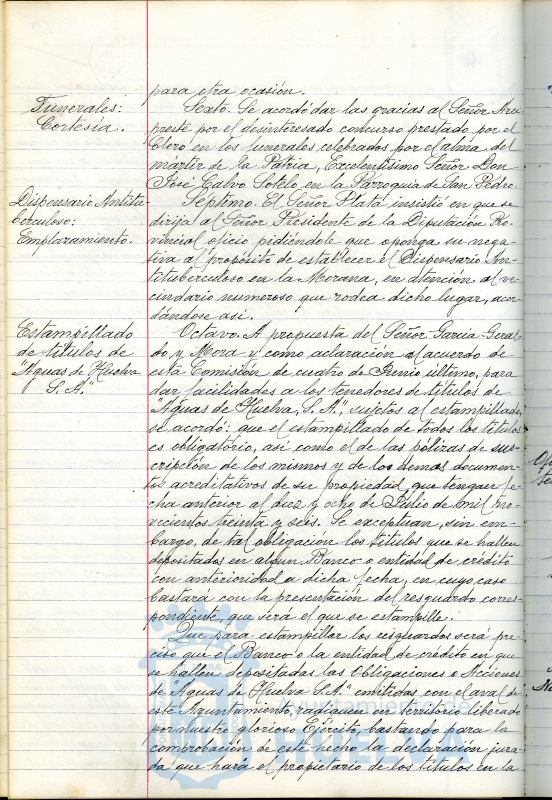 para otra ocasión.
Funerales:
Cortesía.
Sexto. Se acordó dar las gracias al Señor Arci-
preste por el desinteresado concurso prestado por el
Clero en los funerales celebrados por el alma del
mártir de la Patria, Excelentísimo Señor Don
José Calvo Sotelo en la Parroquia de San Pedro.
Dispensario Antitu-
berculoso:
Emplazamiento.
Séptimo. El Señor Plata, insistió en que se
dirija al Señor Presidente de la Diputación Pro-
vincial oficio pidiendole que oponga su nega-
tiva al propósito de establecer el Dispensario An-
tituberculoso en la Morana, en atención al ve-
cindario numeroso que rodea dicho lugar, acor-
dándose así.
Estampillado
de títulos de
"Aguas de Huelva
S. A."
Octavo. A propuesta del Señor Garcia Geral-
do, y Mora y como aclaración al acuerdo de
esta Comisión de cuatro de último, para
dar facilidades a los tenedores de títulos de
"Aguas de Huelva, S. A.", sujetos al estampillado,
se acordó: que el estampillado de todos los títulos
es obligatorio, así como el de las pólizas de sus-
cripción de los mismos y de los demas documen-
tos acreditativos de su propiedad, que tengan fe-
cha anterior al diez y ocho de Julio de mil no-
vecientos treinta y seis. Se exceptuan, sin em-
bargo, de tal obligación los títulos que se hallen
depositados en algun Banco o entidad de crédito
con anterioridad a dicha fecha, en cuyo caso
bastará con la presentación del resguardo corres-
pondiente, que será el que se estampille.
Que para estampillar los resguardos será pre-
ciso que el Banco o la entidad de crédito en que
se hallen depositadas las Obligaciones o Acciones
de "Aguas de Huelva S.A." emitidas con el aval de
este Ayuntamiento, radiquen en territorio liberado
por nuestro glorioso Ejército, bastando para la
comprobación de este hecho la declaración jura-
da que hará el propietario de los títulos en la
Ayuntamiento de
HUELVA